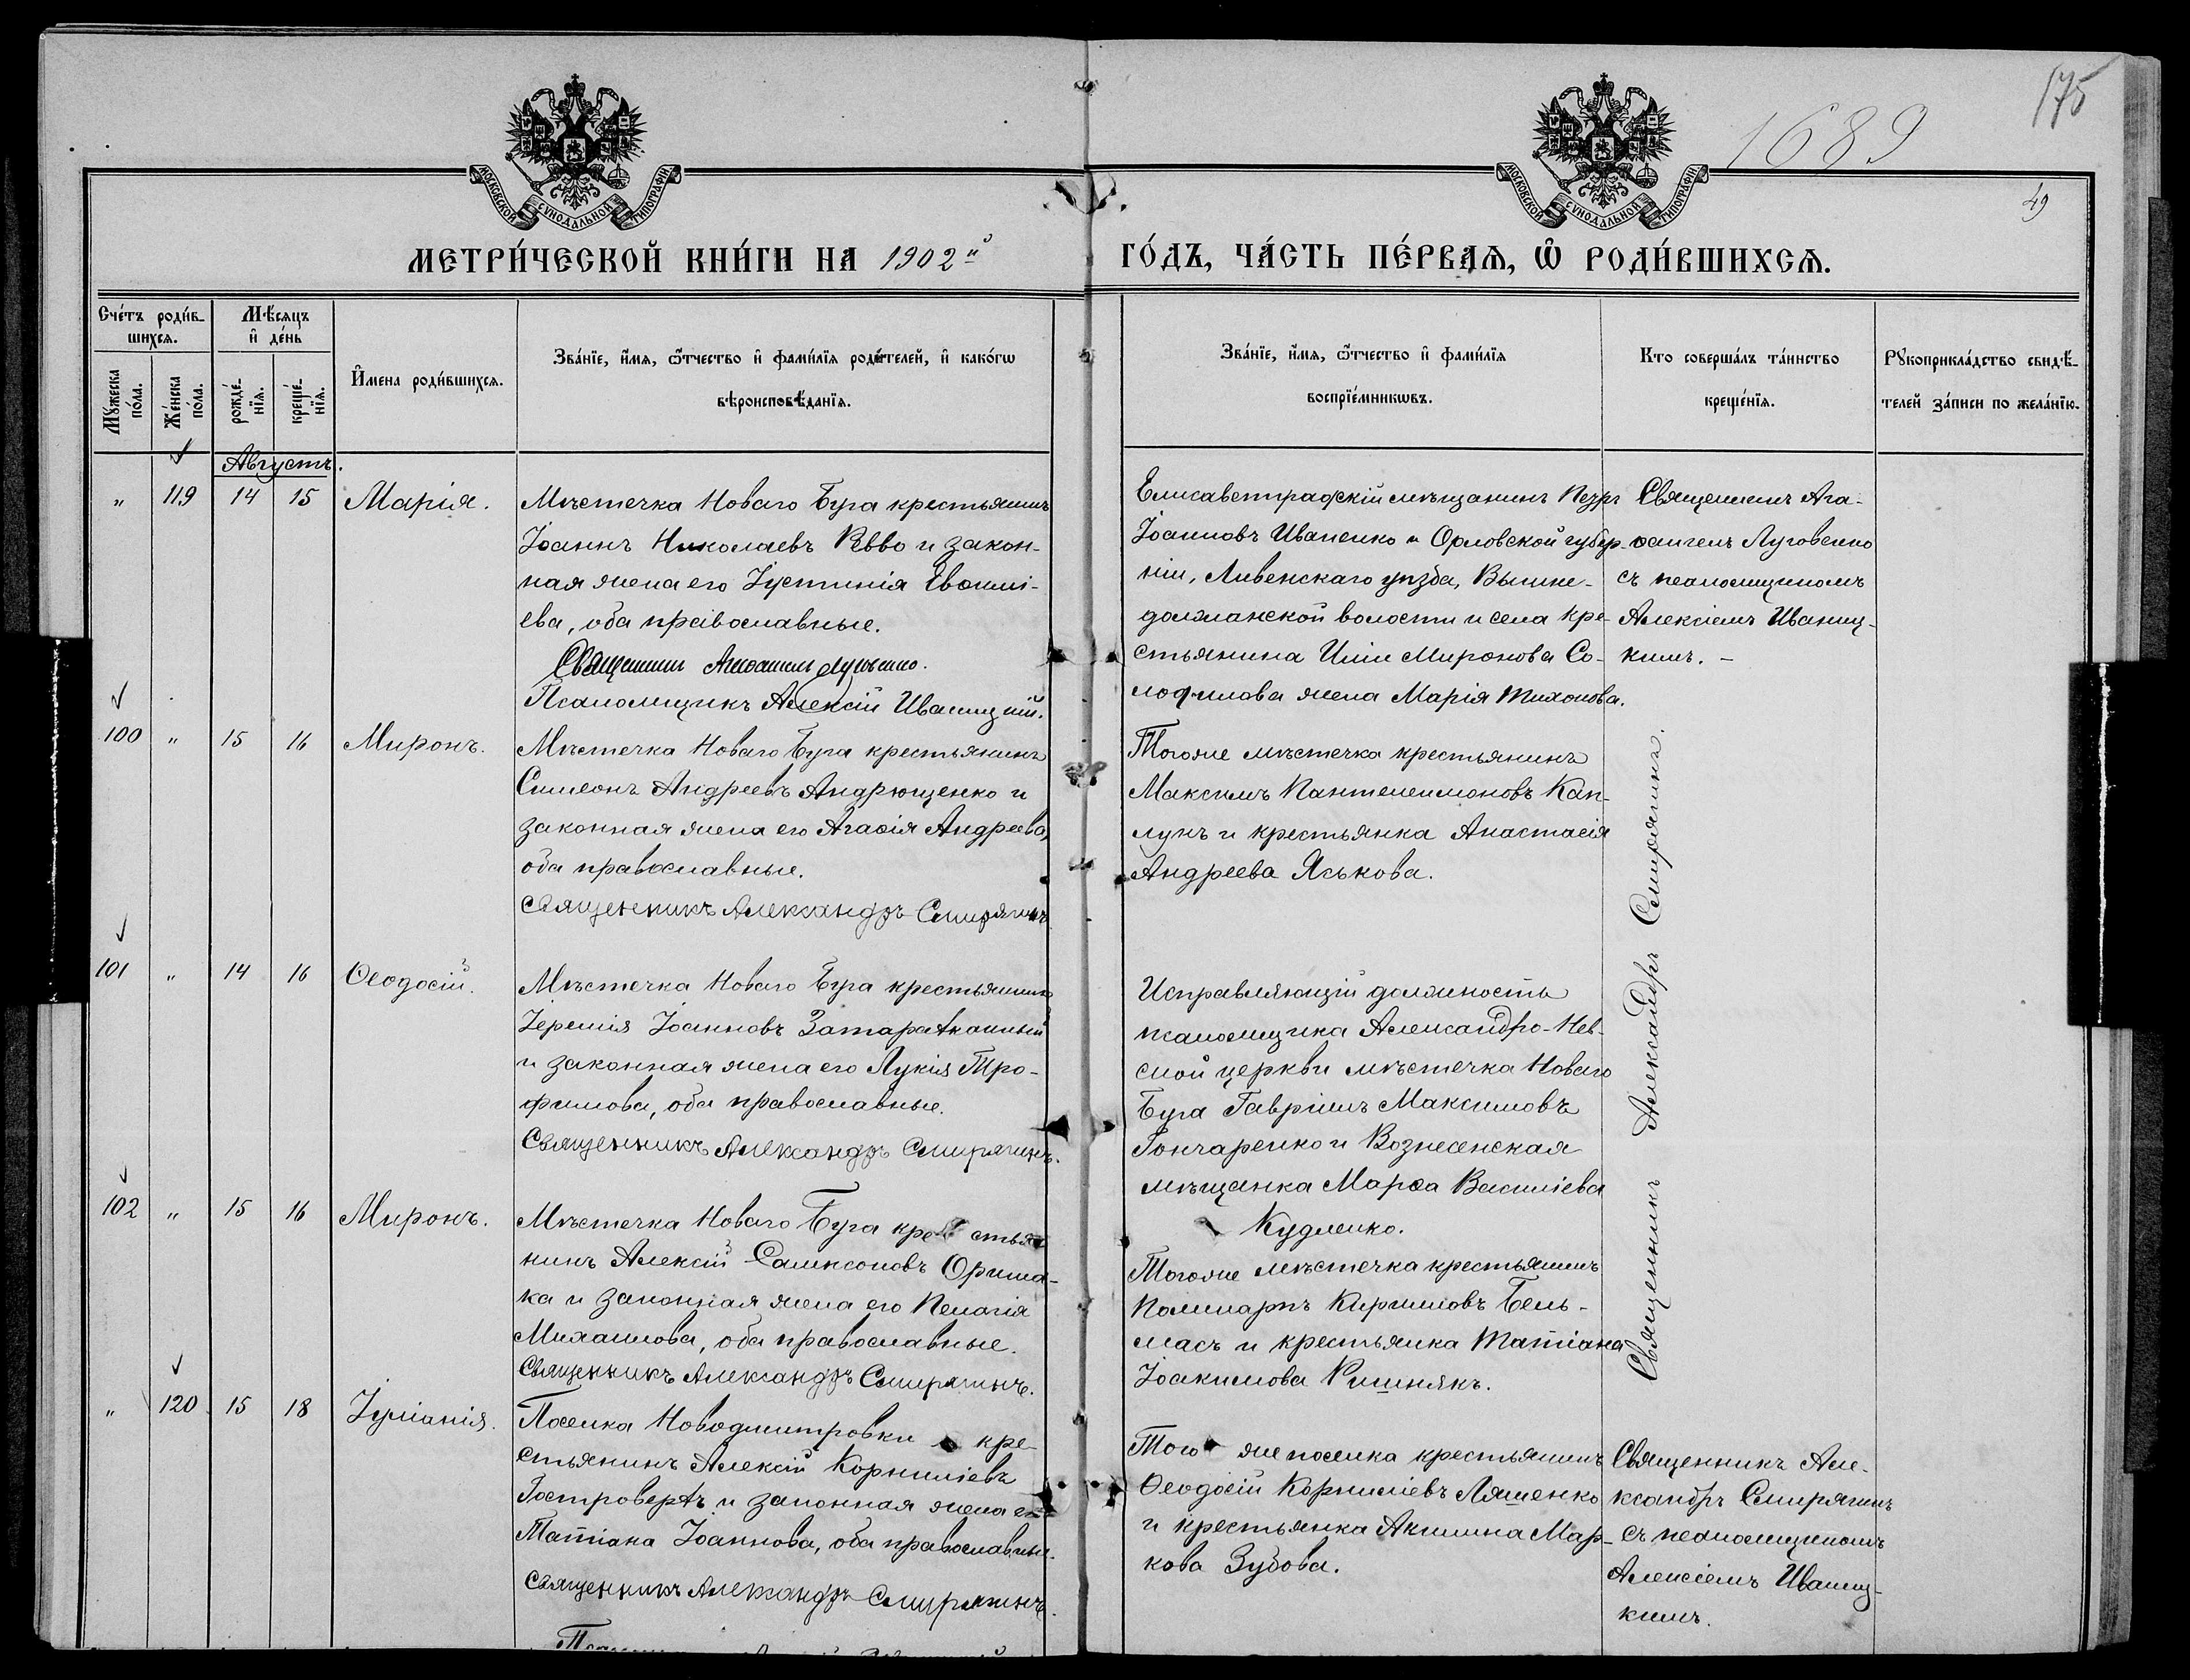 175
1689
49
МОСКОВСКОЙ СУНОДАЛЬНОЙ ТИПОГРАФІИ
МОСКОВСКОЙ СУНОДАЛЬНОЙ ТИПОГРАФІИ
МЕТРИ́ЧЕСКОЙ КНИ́ГИ НА 1902й
ГО́ДЪ, ЧА́СТЬ ПЕ́РВАѦ, Ѡ҆ РОДИ́ВШИХСѦ.
Сче́тъ роди́в-
шихсѧ.
Мꙋ́жеска по́ла.
Же́нска по́ла.
Мѣ́сѧцъ
и҆ де́нь
рожде́-
нїѧ.
креще́-
нїѧ.
И҆мена роди́вшихсѧ.
Зва́нїе, и҆́мѧ, ѻ҆́тчество и҆ фами́лїѧ роди́телей, и҆ како́гѡ
вѣроисповѣ́данїѧ.
Зва́нїе, и҆́мѧ, ѻ҆́тчество и҆ фами́лїѧ
воспрїе́мникѡвъ.
Кто соверша́лъ та́инство
креще́нїѧ.
Рꙋкоприкла́дство свидѣ́-
телей за́писи по жела́нїю.
Августъ.
" 119 14 15 Марія.
Мѣстечка Новаго Буга крестьянинъ
Іоаннъ Николаевъ Ревво и закон-
ная жена его Іустинія
ева, оба православные.
Священникъ Агаѳангелъ Луговенко.
Псаломщикъ Алексій Иваницкій.
Елисаветградскій мѣщанинъ Петръ
Іоанновъ Иваненко и Орловской губер-
ніи, Ливенскаго уѣзда, Вышне-
должанской волости и села кре-
стьянина Иліи Миронова Со-
лофилова жена Марія Тихонова.
Священникъ Ага-
ѳангелъ Луговенко
съ псаломщикомъ
Алексіемъ Иваниц-
кимъ. –
100 " 15 16 Миронъ.
Мѣстечка Новаго Буга крестьянинъ
Симеонъ Андреевъ Андрющенко и
законная жена его Агаѳія Андреева,
оба православные.
Священникъ Александръ Смирягинъ
Тогоже мѣстечка крестьянинъ
Максимъ Пантелеимоновъ Кап-
лунъ и крестьянка Анастасія
Андреева Яськова.
Священникъ Александръ Смирягинъ.
101 " 14 16 Ѳеодосій.
Мѣстечка Новаго Буга крестьянинъ
Іеремія Іоанновъ
и законная жена его Лукія Тро-
фимова, оба православные.
Священникъ Александръ Смирягинъ.
Исправляющій должность
псаломщика Александро-Нев-
ской церкви мѣстечка Новаго
Буга Гавріилъ Максимовъ
Гончаренко и Вознесенская
мѣщанка Марѳа Василіева
Кудленко.
102 " 15 16 Миронъ.
Мѣстечка Новаго Буга крестья
нинъ Алексій Сампсоновъ Оришa-
ка и законная жена его Пелагія
Михаилова, оба православные.
Священникъ Александръ Смирягинъ.
Тогоже мѣстечка крестьянинъ
Поликарпъ Кирилловъ Бель-
масъ и крестьянка Татіана
Іоакимова Ришнякъ.
" 120 15 18 Іуліанія.
Поселка Новодмитровки кре-
стьянинъ Алексій Корниліевъ
Гостровертъ и законная жена его
Татіана Іоаннова, оба православные.
Священникъ Александръ Смирягинъ.
Того же поселка крестьянинъ
Ѳеодосій Корниліевъ Ляшенко
и крестьянка Акилина Мар-
кова Зубова.
Священникъ Але-
ксандръ Смирягинъ
съ псаломщикомъ
Алексіемъ Иваниц-
кимъ.